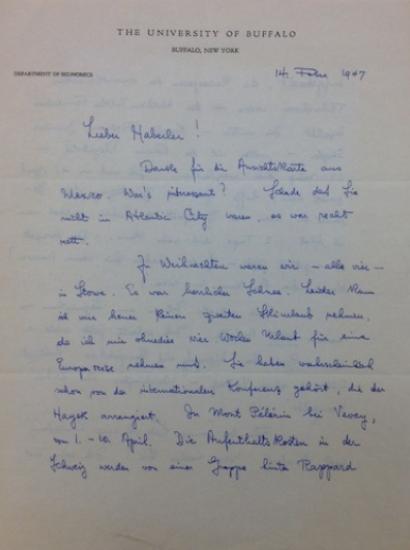 THE UNIVERSITY OF BUFFALO
BUFFALO, NEW YORK
DEPARTMENT OF ECONOMICS
14. Febr 1947
Lieber Haberler!
Danke für die Ansichtskarte aus
Mexico. War's interessant? Schade daß Sie
nicht in Atlantic City waren, es war recht
nett.
Zu Weihnachten waren wir – alle vier –
in Stowe. Es war herrlicher Schnee. Leider kann
ich mir heuer keinen zweiten Skiurlaub nehmen,
da ich mir ohnedies vier Wochen Urlaub für eine
Europareise nehmen muß. Sie haben wahrscheinlich
schon von der internationalen Konferenz gehört, die der
Hayek arrangiert. In Mont Pélerin bei Vevey,
vom 1. – 10. April. Die Aufenthaltskosten in der
Schweiz werden von einer Gruppe hinter Rappard